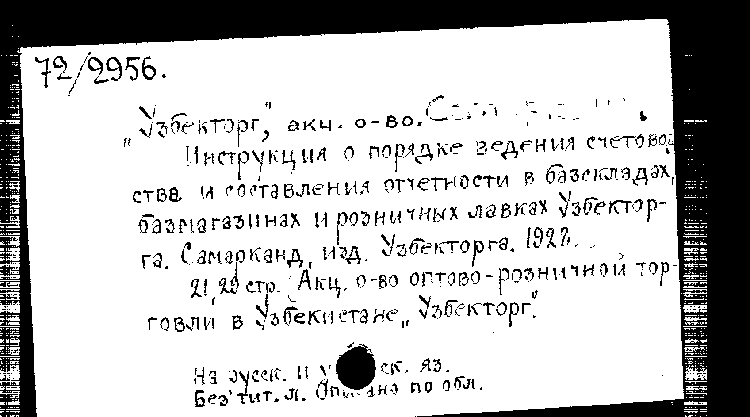 72/2956.
"Узбекторг", акц. о-во.
Инструкция о порядке ведения счетовод
ства и составления отчетности в базскладах,
базмагазинах и розничных лавках Узбектор-
га. Самарканд, изд. Узбекторга.
21, 29 стр. (Акц. о-во оптово-розничной тор-
говли в Узбекистане "Узбекторг".
На русск. и яз.
Без тит. л. Описано по обл.